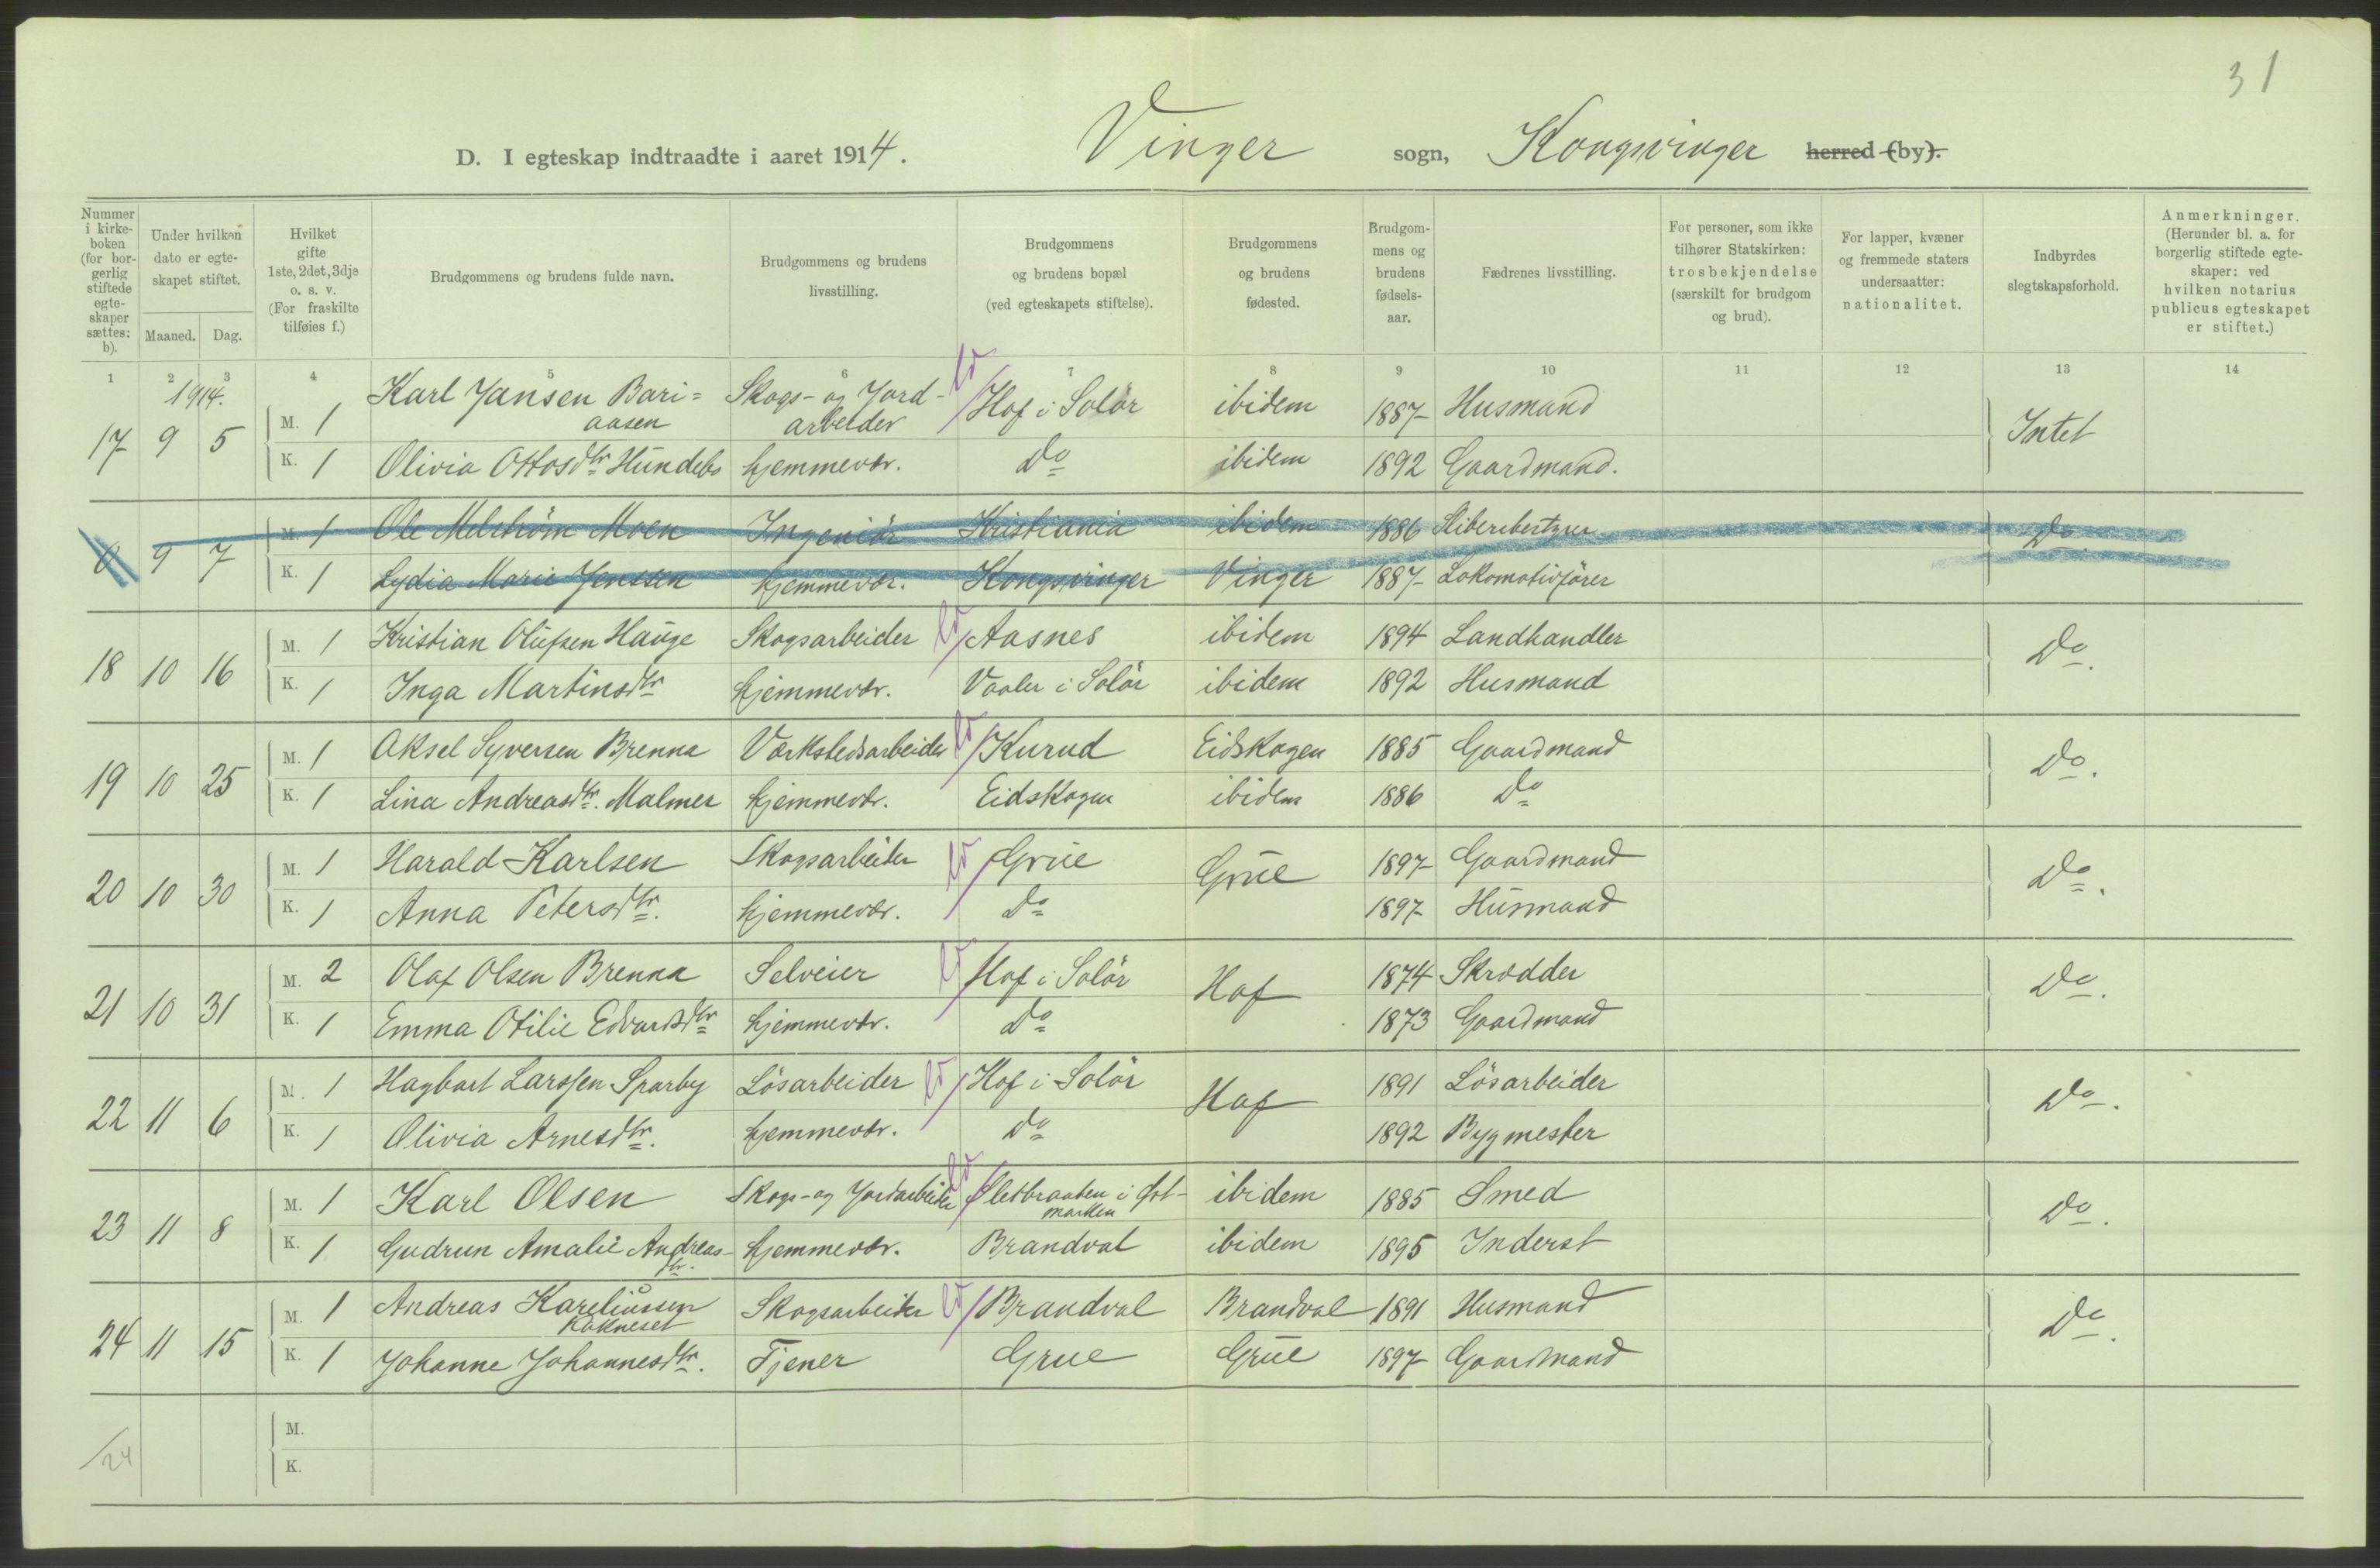 31
D. I egteskap indtraadte i aaret 1914. Vinger sogn, Kongsvinger herred (by).
Nummer i kirkeboken (for borgerlig stiftede egteskaper sættes: b).
Under hvilken dato er egteskapet stiftet.
Maaned. Dag.
Hvilket gifte 1ste, 2det, 3dje o. s. v. (For fraskilte tilføies f.)
Brudgommens og brudens fulde navn.
Brudgommens og brudens livsstilling.
Brudgommens og brudens bopæl (ved egteskapets stiftelse).
Brudgommens og brudens fødested.
Brudgommens og brudens fødselsaar.
Fædrenes livsstilling.
For personer, som ikke tilhører Statskirken: trosbekjendelse (særskilt for brudgom og brud).
For lapper, kvæner og fremmede staters undersaatter: nationalitet.
Indbyrdes slegtskapsforhold.
Anmerkninger. (Herunder bl. a. for borgerlig stiftede egteskaper: ved hvilken notarius publicus egteskapet er stiftet.)
1 2 3 4 5 6 7 8 9 10 11 12 13 14
1914.
17 9 5 M. 1 Karl Jansen Bariaasen Skogs- og Jordarbeider Hof i Solör ibidem 1887 Husmand Intet
K. 1 Olivia Ottosdtr Hundebo hjemmevær. Do ibidem 1892 Gaardmand.
0 9 7 M. 1 Ole Melström Moen Ingeniör Kristiania ibidem 1886 Do
K. 1 Lydia Marie Jenssen hjemmevær. Kongsvinger Vinger 1887 Lokomotivförer
18 10 16 M. 1 Kristian Olufsen Hauge Skogsarbeider Aasnes ibidem 1894 Landhandler Do.
K. 1 Inga Martinsdtr hjemmevær. Vaaler i Solör ibidem 1892 Husmand
19 10 25 M. 1 Aksel Syversen Brenna Værkstedsarbeider Kurud Eidskogen 1885 Gaardmand Do.
K. 1 Lina Andreasdtr. Malmer hjemmevær. Eidskogen ibidem 1886 Do
20 10 30 M. 1 Harald Karlsen Skogsarbeider Grue Grue 1897 Gaardmand Do.
K. 1 Anna Petersdtr. hjemmevær. Do 1897 Husmand
21 10 31 M. 2 Olaf Olsen Brenna Selveier Hof i Solör Hof 1874 Skrædder Do.
K. 1 Emma Otilie Edvardsdtr hjemmevær. Do 1873 Gaardmand
22 11 6 M. 1 Hagbart Larssen Sparby Lösarbeider Hof i Solör Hof 1891 Lösarbeider Do.
K. 1 Olivia Arnesdtr. hjemmevær. Do 1892 Bygmester
23 11 8 M. 1 Karl Olsen Skogs- og Jordarbeider i Østmarken ibidem 1885 Smed Do.
K. 1 Gudrun Amalie Andreasdtr. hjemmevær. Brandval ibidem 1895 Inderst
24 11 15 M. 1 Andreas Kareliussen Kakneset Skogsarbeider Brandval Brandval 1891 Husmand Do.
K. 1 Johanne Johannesdtr. Tjener Grue Grue 1897 Gaardmand
/24 M.
K.